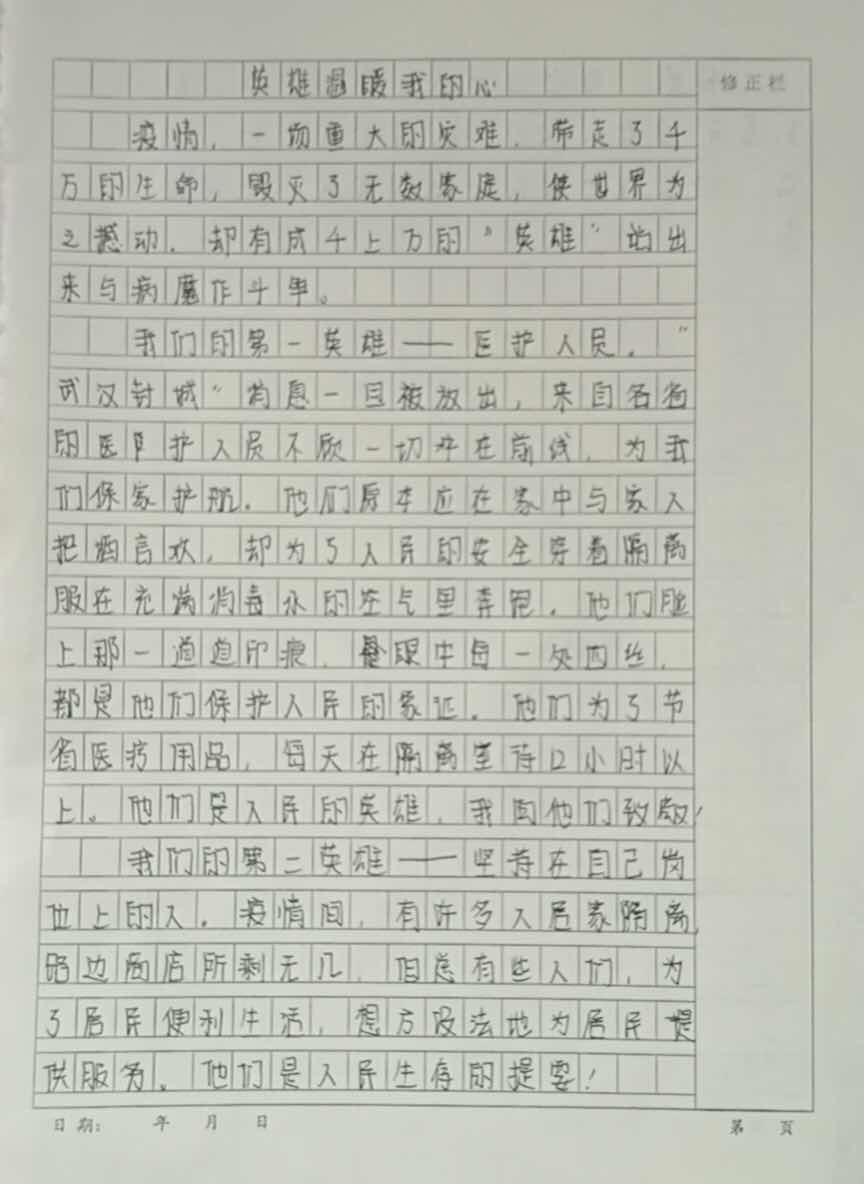 英雄温暖我的心
修正栏
疫情,一场重大的灾难,带走了千
万的生命,毁灭了无数家庭,使世界为
之撼动。却有成千上万的“英雄”站出
来与病魔作斗争。
我们的第一英雄——医护人员。“
武汉封城”消息一旦被放出,来自各省
的医护人员不顾一切冲在前线,为我
们保家护航。他们原本应在家中与家人
把酒言欢,却为了人民的安全穿着隔离
服在充满消毒水的空气里奔跑。他们脸
上那一道道印痕,眼中每一处血丝,
都是他们保护人民的象证。他们为了节
省医疗用品,每天在隔离室待12小时以
上。他们是人民的英雄,我向他们致敬!
我们的第二英雄——坚持在自己岗
位上的人。疫情间,有许多人居家隔离,
路边商店所剩无几,但总有些人们,为
了居民便利生活,想方设法地为居民提
供服务。他们是人民生存的提要!
日期: 年 月 日 第 页